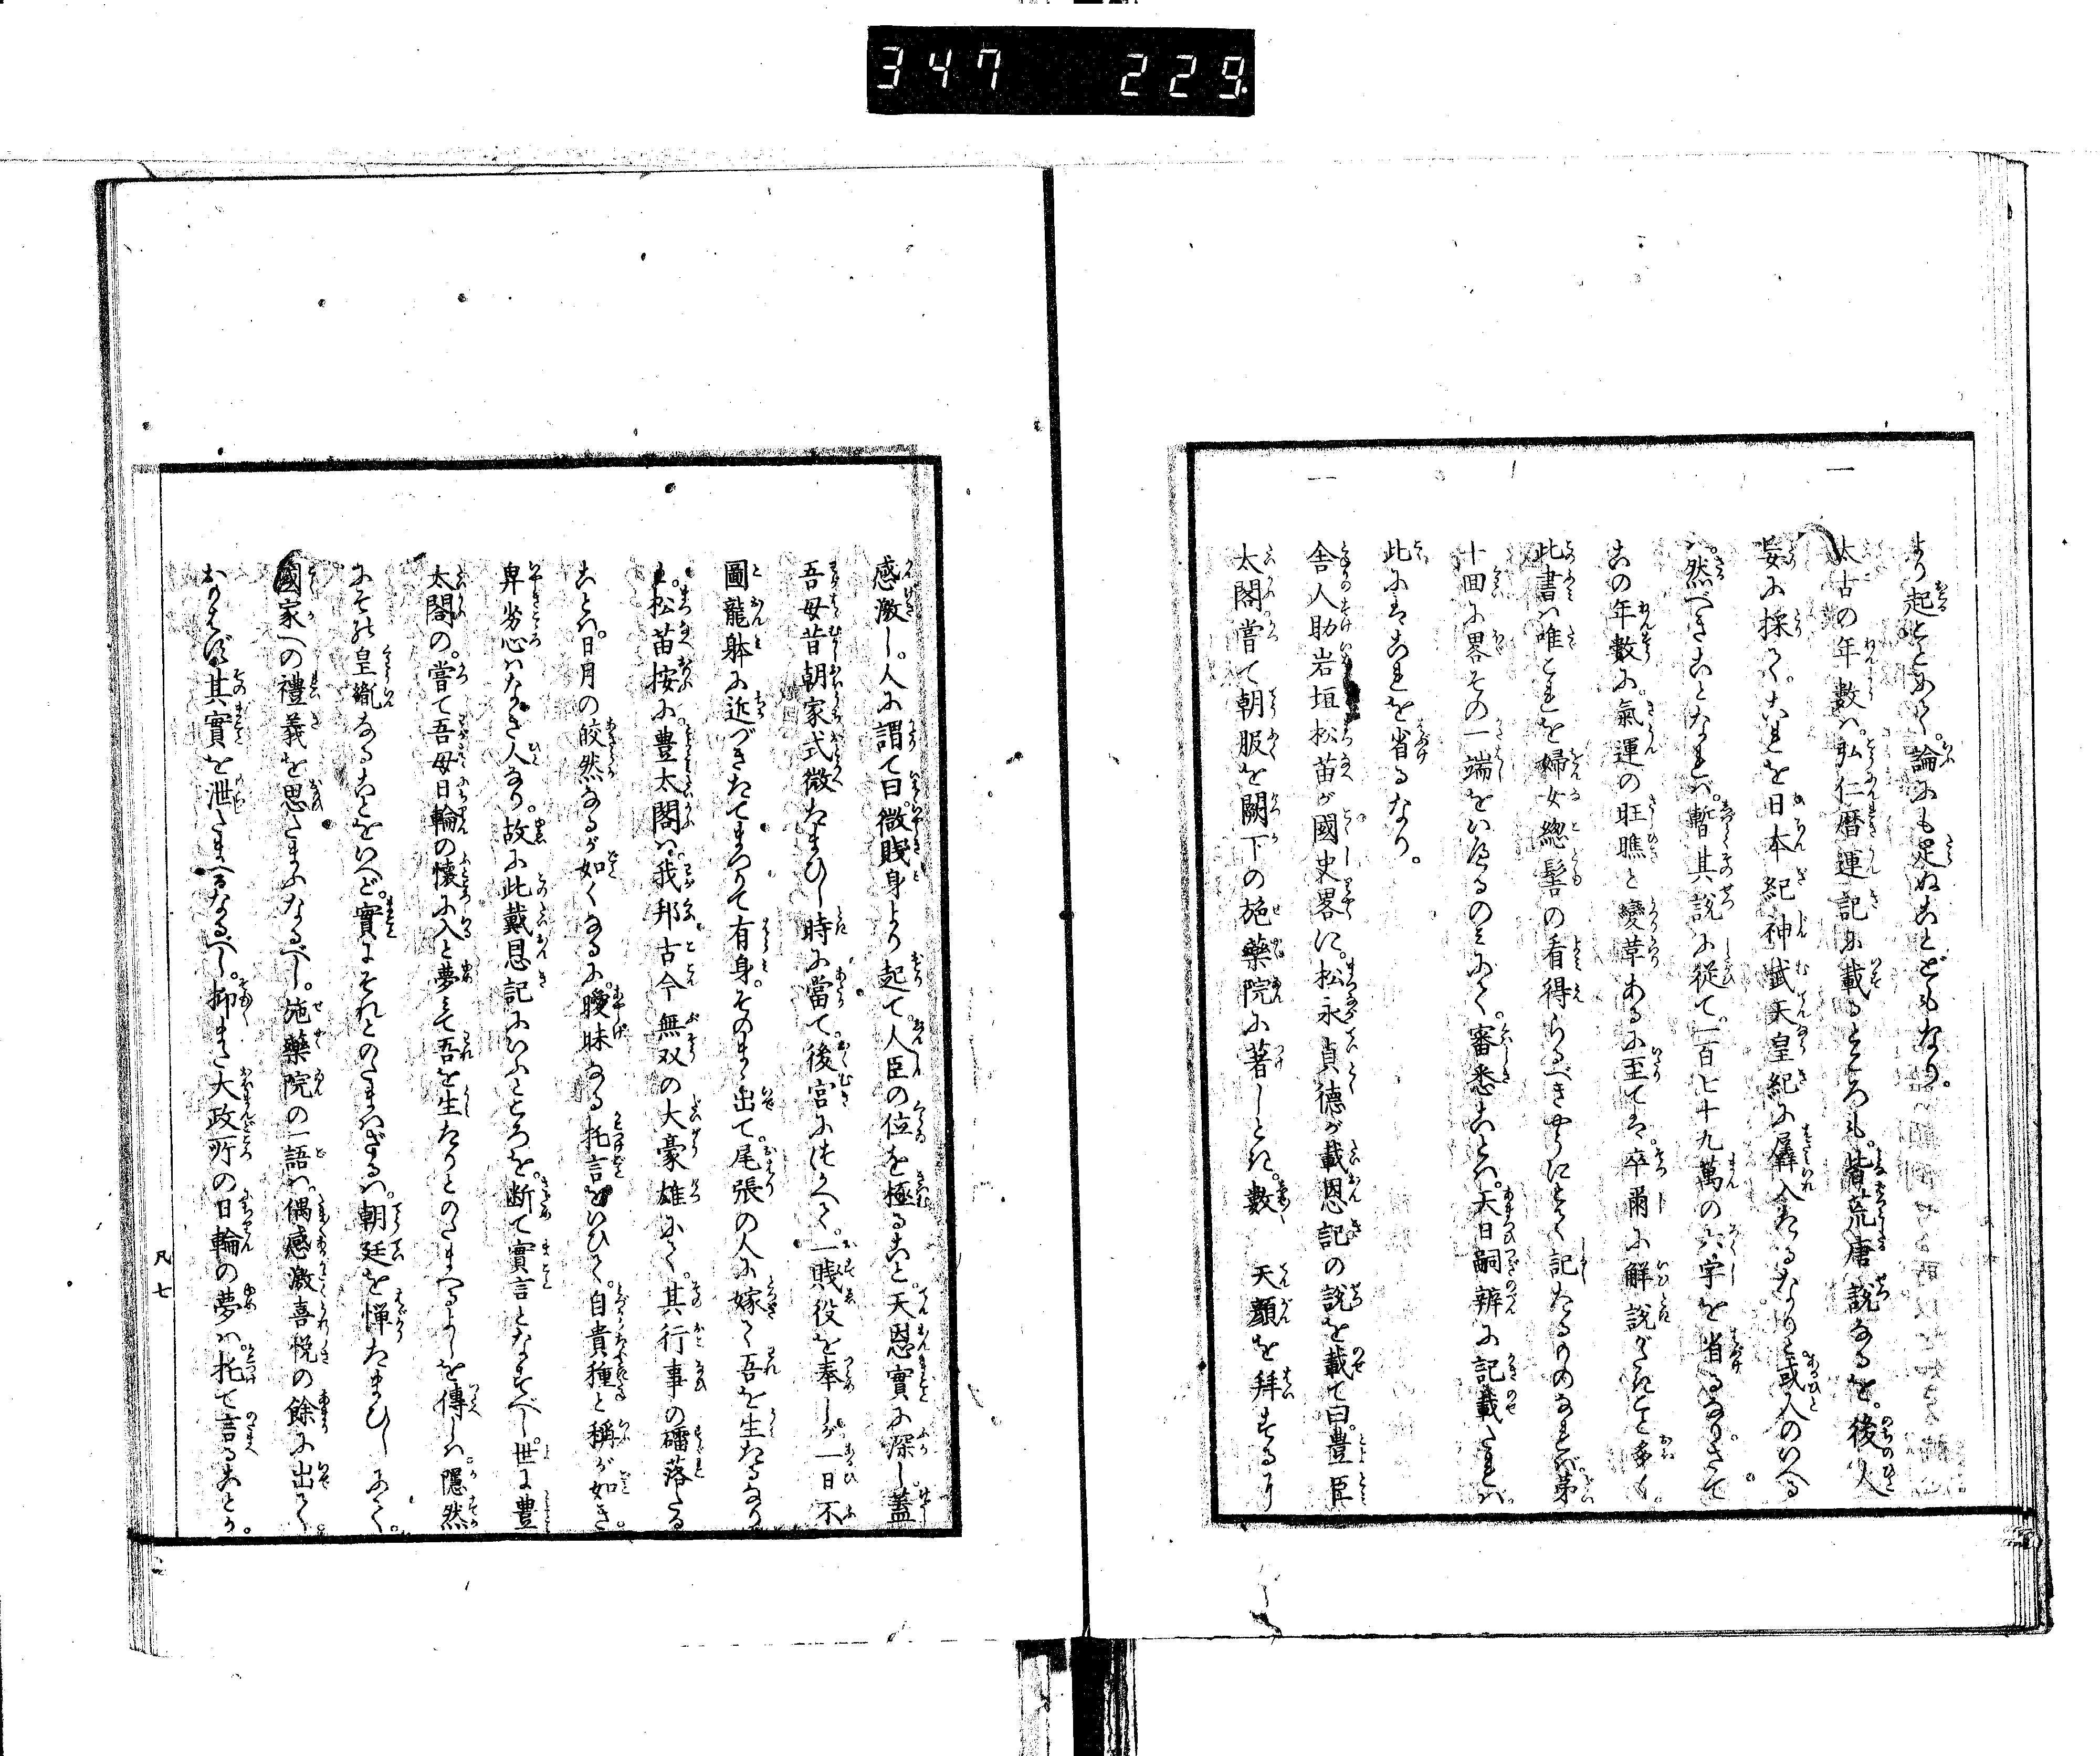 347 229
より起ことにて。論にも足ぬことどもなり。
一 太古の年數は。弘仁暦運記に載るところも。皆荒唐説なるを。後人
妄に採て。これを日本紀神武天皇紀に羼入たるなりと或人のいへる
は。然べきことなれば。暫其説に從て。一百七十九萬の六字を省るなり。さて
この年數に。氣運の旺瞧と變革あるに至ては。卒爾に解説がたきこと多し。
此書は唯これを婦女總髻の看得らるべきやうにとて記たるものなれば。第
十回に畧その一端をいへるのみにて。審悉ことは。天日嗣辨に記載たれば。
此にはこれを省るなり。
一 舎人助岩垣松苗が國史畧に。松永貞德が載恩記の説を載て曰。豊臣
太閤嘗て朝服を闕下の施藥院に著しとき。數 天顔を拜せるに
感激し。人に謂て曰。微賤身より起て。人臣の位を極ること。天恩實に深し。蓋
吾母昔朝家式微たまひし時に當て。後宮に仕へて。一賤役を奉しが一日不
圖龍躰に近づきたてまつりて有身。そのまゝ出て。尾張の人に嫁て吾を生たるなり
と。松苗按に。豊太閤は。我邦古今無双の大豪雄にて。其行事の礌落たる
ことは。日月の皎然なるが如くなるに。曖昧なる托言をいひて。自貴種と稱が如き。
卑劣心はなき人なり。故に此戴恩記にいふところを。断て實言となすべし。世に豊
太閤の。嘗て吾母日輪の懐に入と夢みて吾を生たりとのたまへるよしを傳しは。隱然
にその皇胤なることをいへど。實にそれとのたまはざるは。朝廷を憚たまひしにて。
國家への禮義を思たまふなるべし。施藥院の一語は。偶感激喜悦の餘に出て。
おもはず其實を泄たまへるなるべし。抑また大政所の日輪の夢は。托て言ることか。
凡七